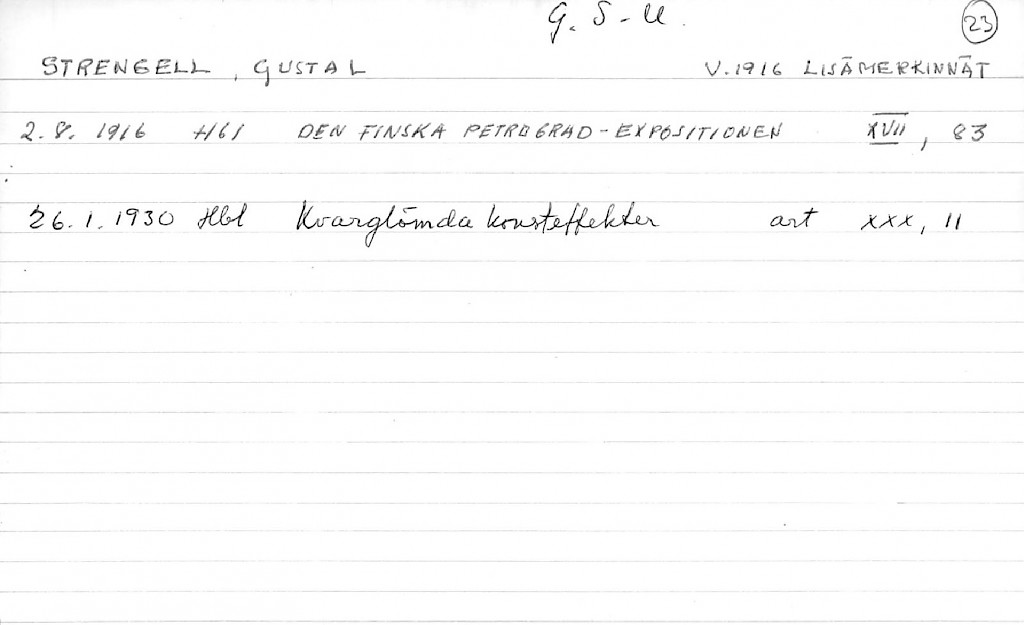 G. S-ll. 23
STRENGELL, GUSTAL V. 1916 LISÄMERKINNÄT
2.8. 1916 Hbl DEN FINSKA PETROGRAD-EXPOSITIONEN XVII, 83
26.1.1930 Hbl Kvarglömda konsteffekter art xxx, 11